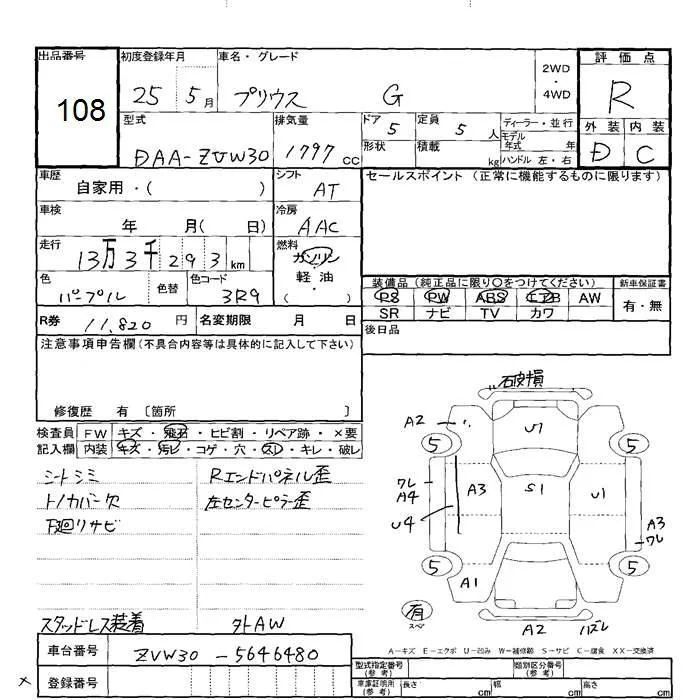 出品番号 初度登録年月 車名・グレード 2WD・4WD 評価点
108 25 5月 プリウス G R
型式 排気量 ドア 5 定員 5人 ディーラー・並行 外装 内装
DAA-ZVW30 1797cc 形状 積載 kg モデル年式 年 ハンドル 左・右 D C
車歴 自家用・( ) シフト AT セールスポイント (正常に機能するものに限ります)
車検 年 月( 日) 冷房 AAC
走行 13万3千293km 燃料 ガソリン
軽油
( )
色 パープル 色替 色コード 3R9
装備品(純正品に限り○をつけてください) 新車保証書
PS PW ABS エアB AW 有・無
SR ナビ TV カワ
R券 11,820円 名変期限 月 日 後日品
注意事項申告欄(不具合内容等は具体的に記入して下さい)
修復歴 有 〔箇所 〕
検査員 FW キズ・飛石・ヒビ割・リペア跡・×要
記入欄 内装 キズ・汚レ・コゲ・穴・スレ・キレ・破レ
シートシミ Rエンドパネル歪
トノカバー欠 左センターピラー歪
下廻りサビ
スタッドレス装着 外AW
破損
A2 U7
5 5
ワレ A4 A3 S1 U1
U4 A3 ワレ
5 5
A1
有 スペア A2 ハズレ
A-キズ E-エクボ U-凹み W-補修跡 S-サビ C-腐食 XX-交換済
車台番号 ZVW30-5646480
型式指定番号(参考) 類別区分番号(参考)
× 登録番号 車庫証明用(参考) 長さ cm 幅 cm 高さ cm